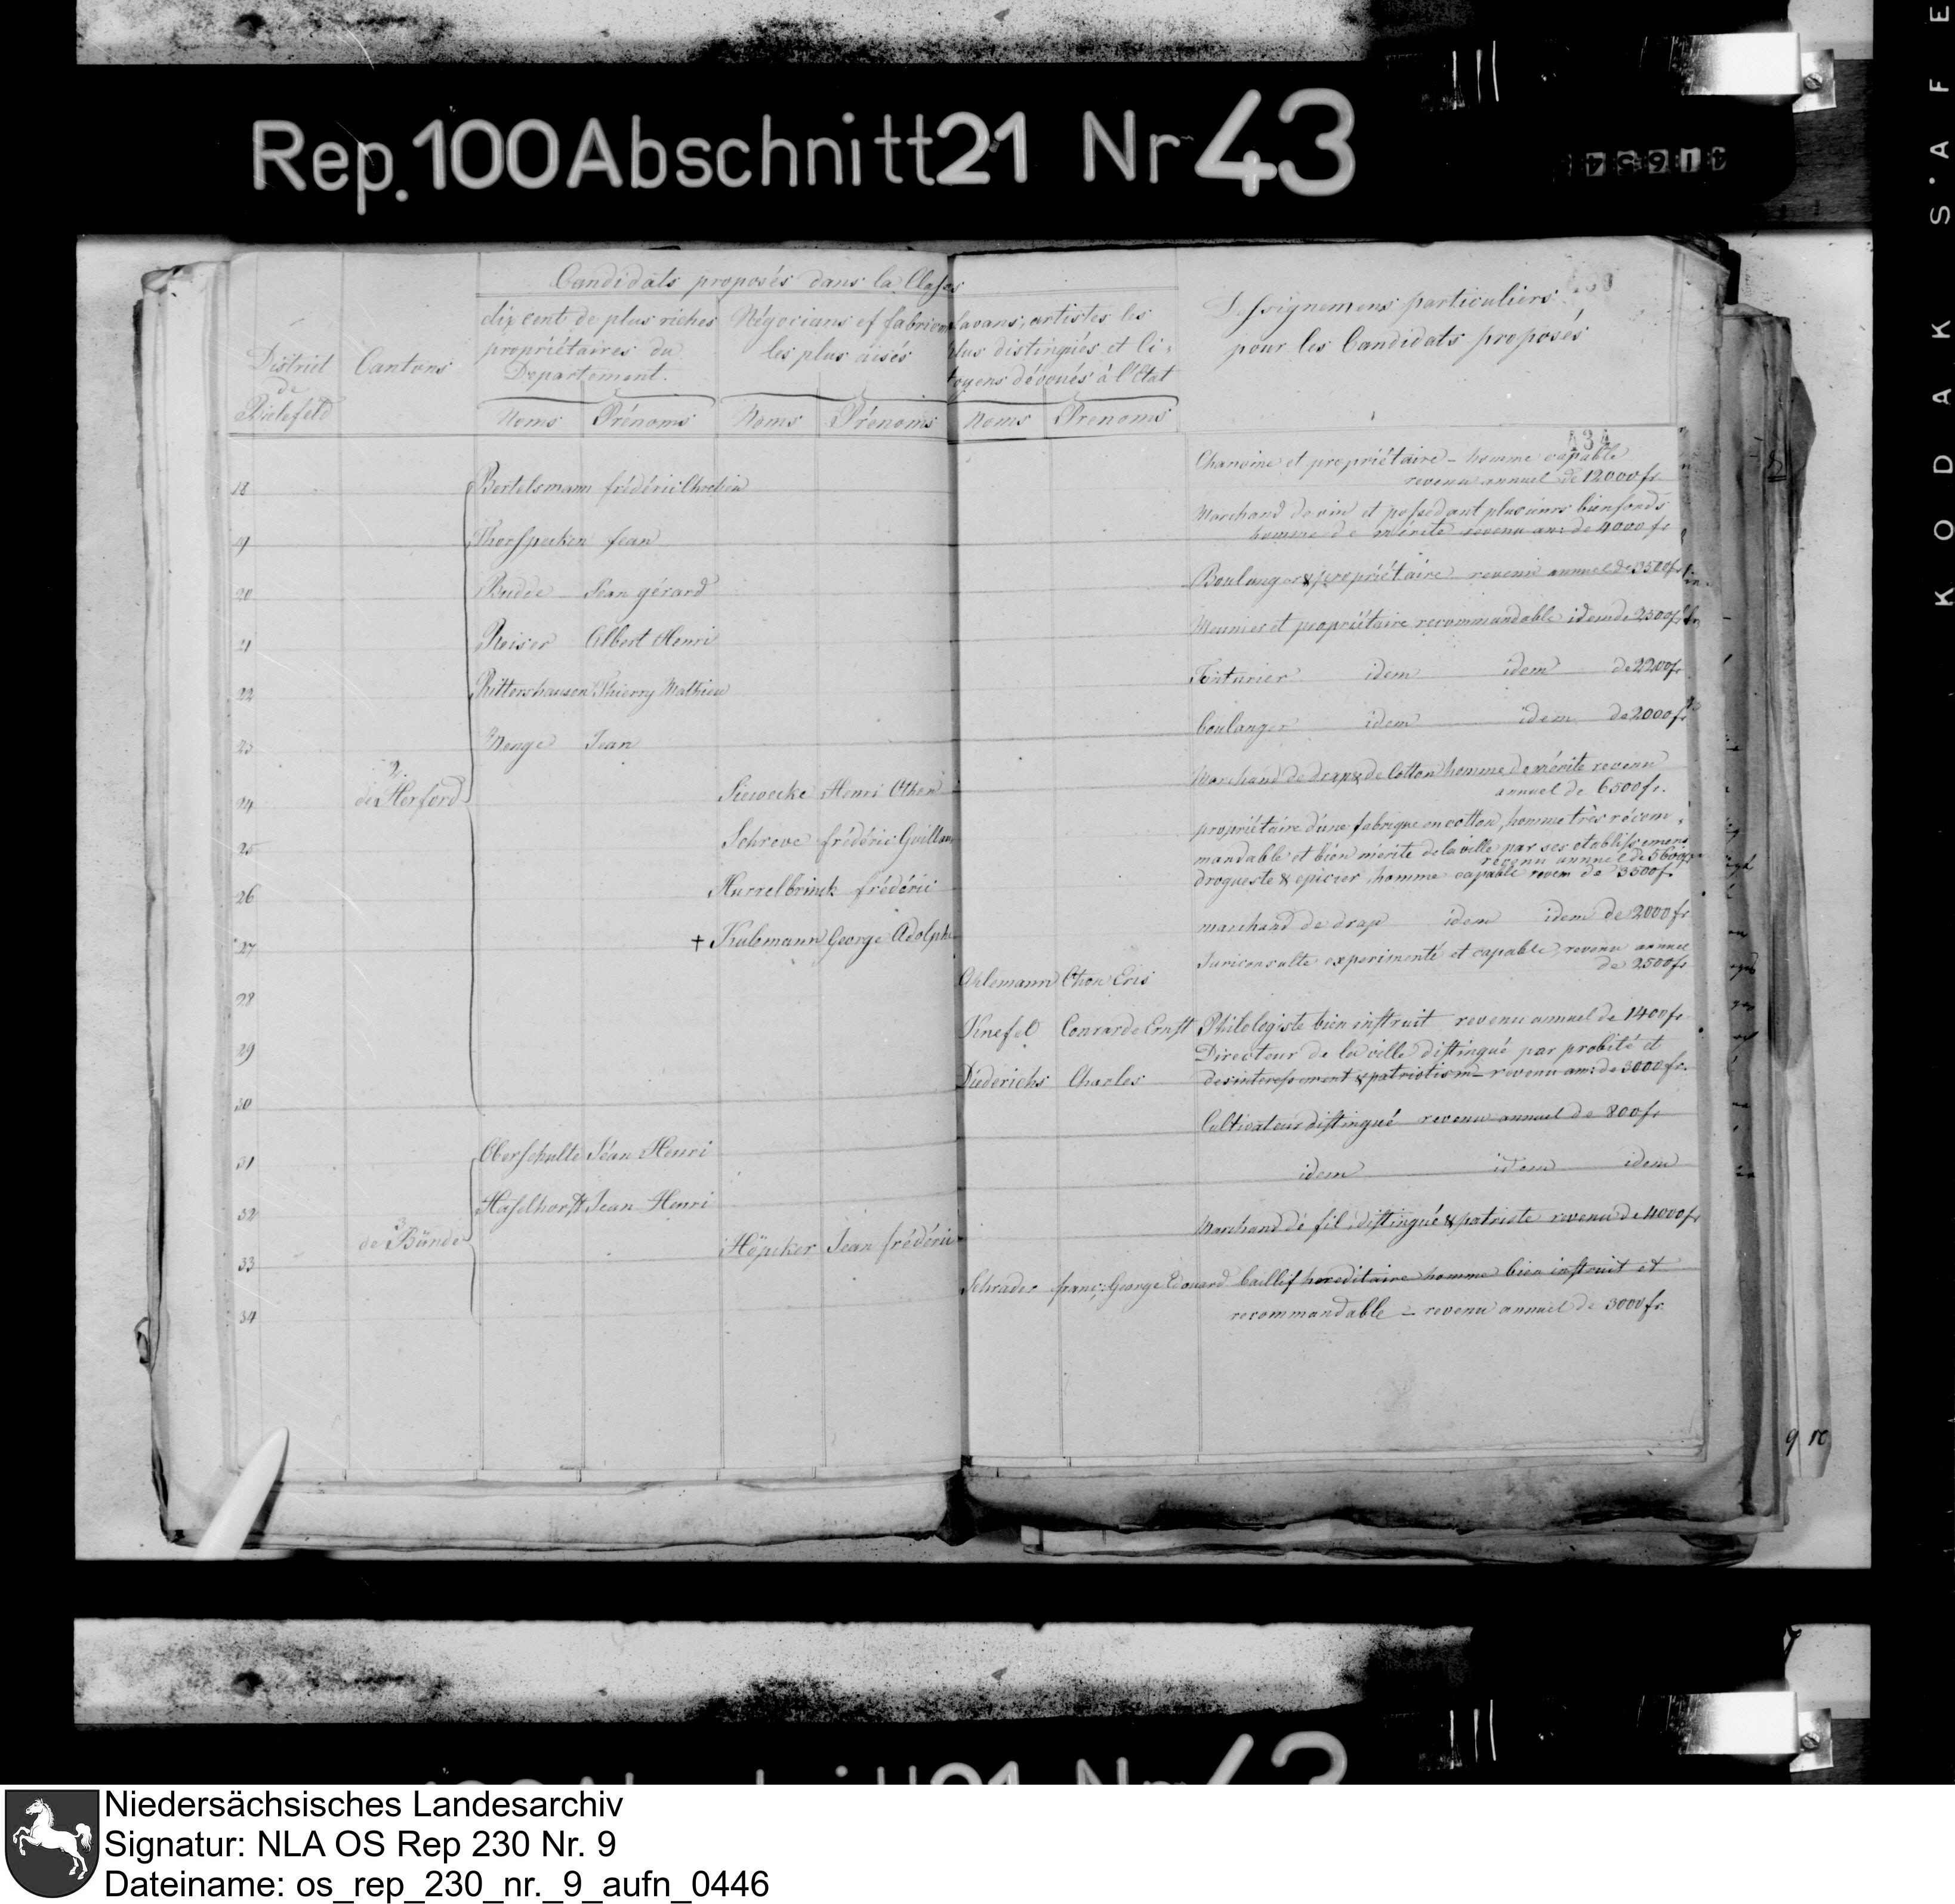 KODAK S.AFE
Rep.100Abschnitt21 Nr 43
Candidats proposés dans la Classe
District de Bielefeld
Cantons
dix cent de plus riches propriétaires du Departement.
Négocians et fabricans les plus aisés
savans, artistes les plus distingués et citoyens dévoués à l'Etat
pour les Candidats proposés
Noms Prénoms Noms Prénoms Noms Prenoms
434
18 Bertelsmann frédéric Chretien Chanoine et propriétaire – homme capable
revenu annuel de 12000 fr.
Marchand de vin et possedant plusieurs bienfonds
19 jean homme de mérite revenu an: de 4000 fr
20 Budde Jean gérard Boulanger & propriétaire revenu annuel de 3500 fr
21 Reiser Albert Henri Meunier et propriétaire recommandable idem de 2500 fr
22 Rittershausen Thierry Mathieu Teinturier idem idem de 2200 fr
23 Menge Jean boulanger idem idem de 2000 fr
2. de Herford
24 Siewecke Henri Othon Marchand de drap & de Cotton homme de mérite revenu
annuel de 6500 fr.
25 Schreve frédéric Guillaume propriétaire d'une fabrique en cotton, homme très récom=
mandable et bien mérite de la ville par ses etablissemens
revenu annuel de
26 Hurrelbrink frédéric droqueste & epicier, homme capable reven de 3500 f.
27 † Kulemann George Adolphe marchand de drap idem idem de 2000 fr
28 Othon Jurisconsulte experimenté et capable, revenu annuel
de 2500 fr
29 Knefel Conrard Ernst Philologiste bien instruit revenu annuel de 1400 fr
30 Diederichs Charles Directeur de la ville distingué par probité et
desinteressement & patriotism – revenu an: de 3000 fr.
31 Oberschulte Jéan Henri Cultivateur distingué revenu annuel de 800 fr
32 Haselhorst Jean Henri idem idem idem
3 de Bünde
33 Höpcker Jean frédéric Marchand de fil, distingué & patriote revenu de 4000 fr
34 Schrader franç: George Edouard baillif hereditaire homme bien instruit et
recommandable – revenu annuel de 3000 fr.
Niedersächsisches Landesarchiv
Signatur: NLA OS Rep 230 Nr. 9
Dateiname: os_rep_230_nr._9_aufn_0446